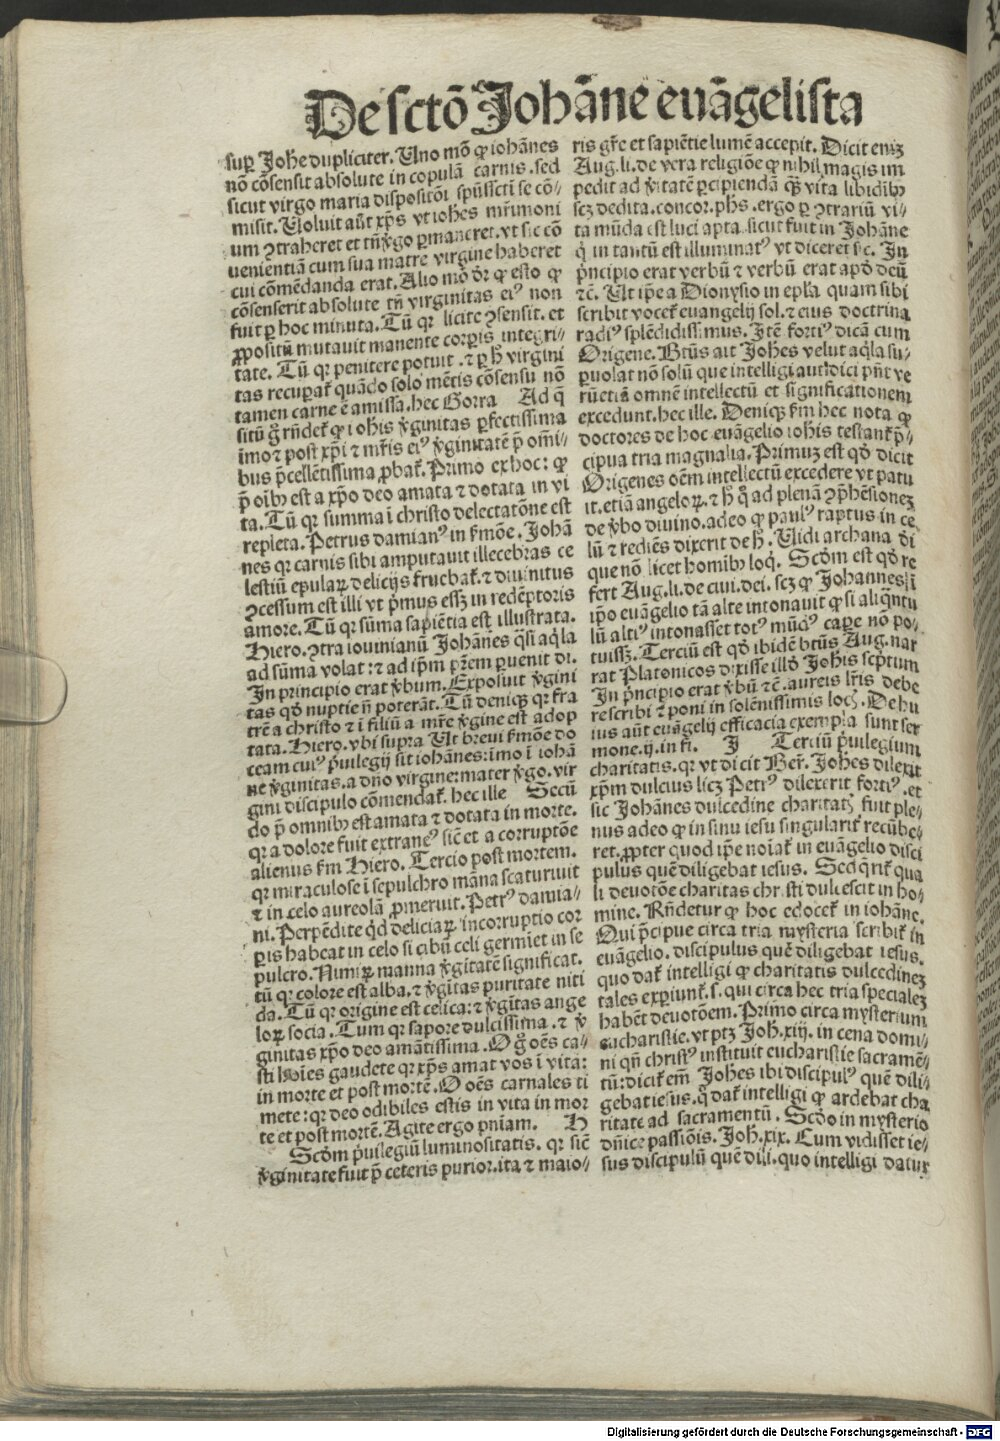 De sctō Johāne euāgelista
suꝑ Johe dupliciter. Uno mō ꝙ iohānes
nō cōsensit absolute in copulā carnis. sed
sicut virgo maria dispositōi spūssctī se cō-
misit. Uoluit aūt xp̄s vt iohes mr̄imoni
um ꝯtraheret et tn̄ v̄go ꝑmaneret. vt sic cō
uenientiā cum sua matre virgine haberet
cui cōmēdanda erat. Alio mō dr̄ ꝙ esto ꝙ
cōsenserit absolute tn̄ virginitas eiꝰ non
fuit ꝑ hoc minuta. Tū qꝛ licite ꝯsensit. et
ꝓpositū mutauit manente corꝑis integri-
tate. Tū qꝛ penitere potuit. ⁊ ꝑ hͦ virgini
tas recuꝑat̄ quādo solo mētis cōsensu nō
tamen carne ē amissa. hec Gorra Ad q̄
sitū gͦ rn̄det̄ ꝙ iohis v̄ginitas ꝑfectissima
īmo ⁊ post xp̄i ⁊ mr̄is eiꝰ v̄ginitatē p̄ om̄i-
bus p̄cellētissima ꝓbat̄. Primo ex hoc: ꝙ
p̄ oībꝰ est a xp̄o deo amata ⁊ dotata in vi
ta. Tū qꝛ summa ī christo delectatōne est
repleta. Petrus damianꝰ in s̄mōe. Johā
nes qꝛ carnis sibi amputauit illecebras ce
lestiū epulaꝝ delicijs fruebat̄. ⁊ diuinitus
ꝯcessum est illi vt p̄mus essꝫ in redēptoris
amore. Tū qꝛ sūma sapiētia est illustrata.
Hiero. ꝯtra iouinianū Johānes q̄si aq̄la
ad sūma volat: ⁊ ad ip̄m pr̄em ꝑuenit di.
In principio erat v̄bum. Exposuit v̄gini
tas qd̄ nuptie n̄ poterāt. Tū deniqꝫ qꝛ fra
trē a christo ⁊ ī filiū a mr̄e v̄gine est adop
tata. Hiero. vbi supra Ut breui s̄mōe do
ceam cuiꝰ p̄uilegij sit iohānes: īmo ī iohā
ne v̄ginitas. a dn̄o virgine: mater v̄go. vir
gini discipulo cōmendat̄. hec ille Secū
do p̄ omnibꝰ est amata ⁊ dotata in morte.
qꝛ a dolore fuit extraneꝰ sic̄ et a corruptōe
alienus s̄m Hiero. Tercio post mortem.
qꝛ miraculose ī sepulchro māna scaturiuit
⁊ in celo aureolā ꝓmeruit. Petrꝰ damia-
ni. Perpēdite qd̄ deliciaꝝ incorruptio cor
ꝑis habeat in celo si cibū celi germīet in se
pulcro. Nimiꝝ manna v̄gītatē significat.
tū qꝛ colore est alba. ⁊ v̄gītas puritate niti
da. Tū qꝛ origine est celica: ⁊ v̄gītas ange
loꝝ socia. Tum qꝛ sapore dulcissima. ⁊ v̄
ginitas xp̄o deo amātissima. O gͦ oēs ca-
sti hoīes gaudete qꝛ xp̄s amat vos ī vita:
in morte et post mortē. O oēs carnales ti
mete: qꝛ deo odibiles estis in vita in mor
te et post mortē. Agite ergo pn̄iam. H
Scd̄m p̄uilegiū luminositatis. qꝛ sic̄
v̄ginitate fuit p̄ ceteris purior. ita ⁊ maio-
ris gr̄e et sapiētie lumē accepit. Dicit enīꝫ
Aug. li. de vera religiōe ꝙ nihil magis im
pedit ad v̄itatē ꝑcipiendā qꝫ vita libidībꝰ
scꝫ dedita. concor. phs. ergo ꝑ ꝯtrariū vi-
ta mūda est luci apta. sicut fuit in Johāne
q̇ in tantū est illuminatꝰ vt diceret sic. In
p̄ncipio erat verbū ⁊ verbū erat apd̄ deū
⁊c̄. Ut ip̄e a Dionysio in ep̄la quam sibi
scribit vocet̄ euangelij sol. ⁊ eius doctrina
radiꝰ splēdidissimus. Itē fortiꝰ dicā cum
Origene. Btūs ait Johes velut aq̄la su-
ꝑuolat nō solū que intelligi aut dici pn̄t ve
rūetiā omnē intellectū et significationem
excedunt. hec ille. Deniqꝫ s̄m hec nota ꝙ
doctores de hoc euāgelio iohis testant̄ p̄-
cipua tria magnalia. Primuꝫ est qd̄ dicit
Origenes oēm intellectū excedere vt patu
it. etiā angeloꝝ. ⁊ hͦ q̇ ad plenā ꝯp̄hēsionez
de v̄bo diuino. adeo ꝙ paulꝰ raptus in ce
lū ⁊ rediēs dixerit de hͦ. Uidi archana di
que nō licet homibꝰ loq̇. Scd̄m est qd̄ re
fert Aug. li. de ciui. dei. scꝫ ꝙ Johannes ī
ip̄o euāgelio tā alte intonauit ꝙ si aliq̄ntu
lū altiꝰ intonasset totꝰ mūdꝰ caꝑe nō po-
tuissꝫ. Terciū est qd̄ ibidē btūs Aug. nar
rat Platonicos dixisse illd̄ Johis scp̄tum
In p̄ncipio erat v̄bū ⁊c̄. aureis lr̄is debe
re scribi ⁊ poni in solēnissimis locꝭ. De hu
ius aūt euāgelij efficacia exempla sunt ser
mone. ij. in fi. J Terciū p̄uilegium
charitatis. qꝛ vt dicit Ber̄. Johes dilexit
xp̄m dulcius licꝫ Petrꝰ dilexerit fortiꝰ. et
sic Johānes dulcedine charitatꝭ fuit ple-
nus adeo ꝙ in sinu iesu singularit̄ recūbe-
ret. ꝓpter quod ip̄e noīat̄ in euāgelio disci
pulus quē diligebat iesus. Sed q̄rit̄ qua
li deuotōe charitas christi dulcescit in ho-
mine. Rn̄detur ꝙ hoc edocet̄ in iohāne.
Qui p̄cipue circa tria mysteria scribit̄ in
euāgelio. discipulus quē diligebat iesus.
quo dat̄ intelligi ꝙ charitatis dulcedinez
tales exꝑiunt̄. s. qui circa hec tria specialez
habēt deuotōem. Primo circa mysterium
eucharistie. vt ptꝫ Joh. xiij. in cena domi-
ni qn̄ christꝰ instituit eucharistie sacramē-
tū: dicit̄ em̄ Johes ibi discipulꝰ quē dili-
gebat iesus. q̊ dat̄ intelligi ꝙ ardebat cha
ritate ad sacramentū. Scd̄o in mysterio
dn̄ice passiōis. Joh. xix. Cum vidisset ie-
sus discipulū quē dili. quo intelligi datur
Digitalisierung gefördert durch die Deutsche Forschungsgemeinschaft - DFG